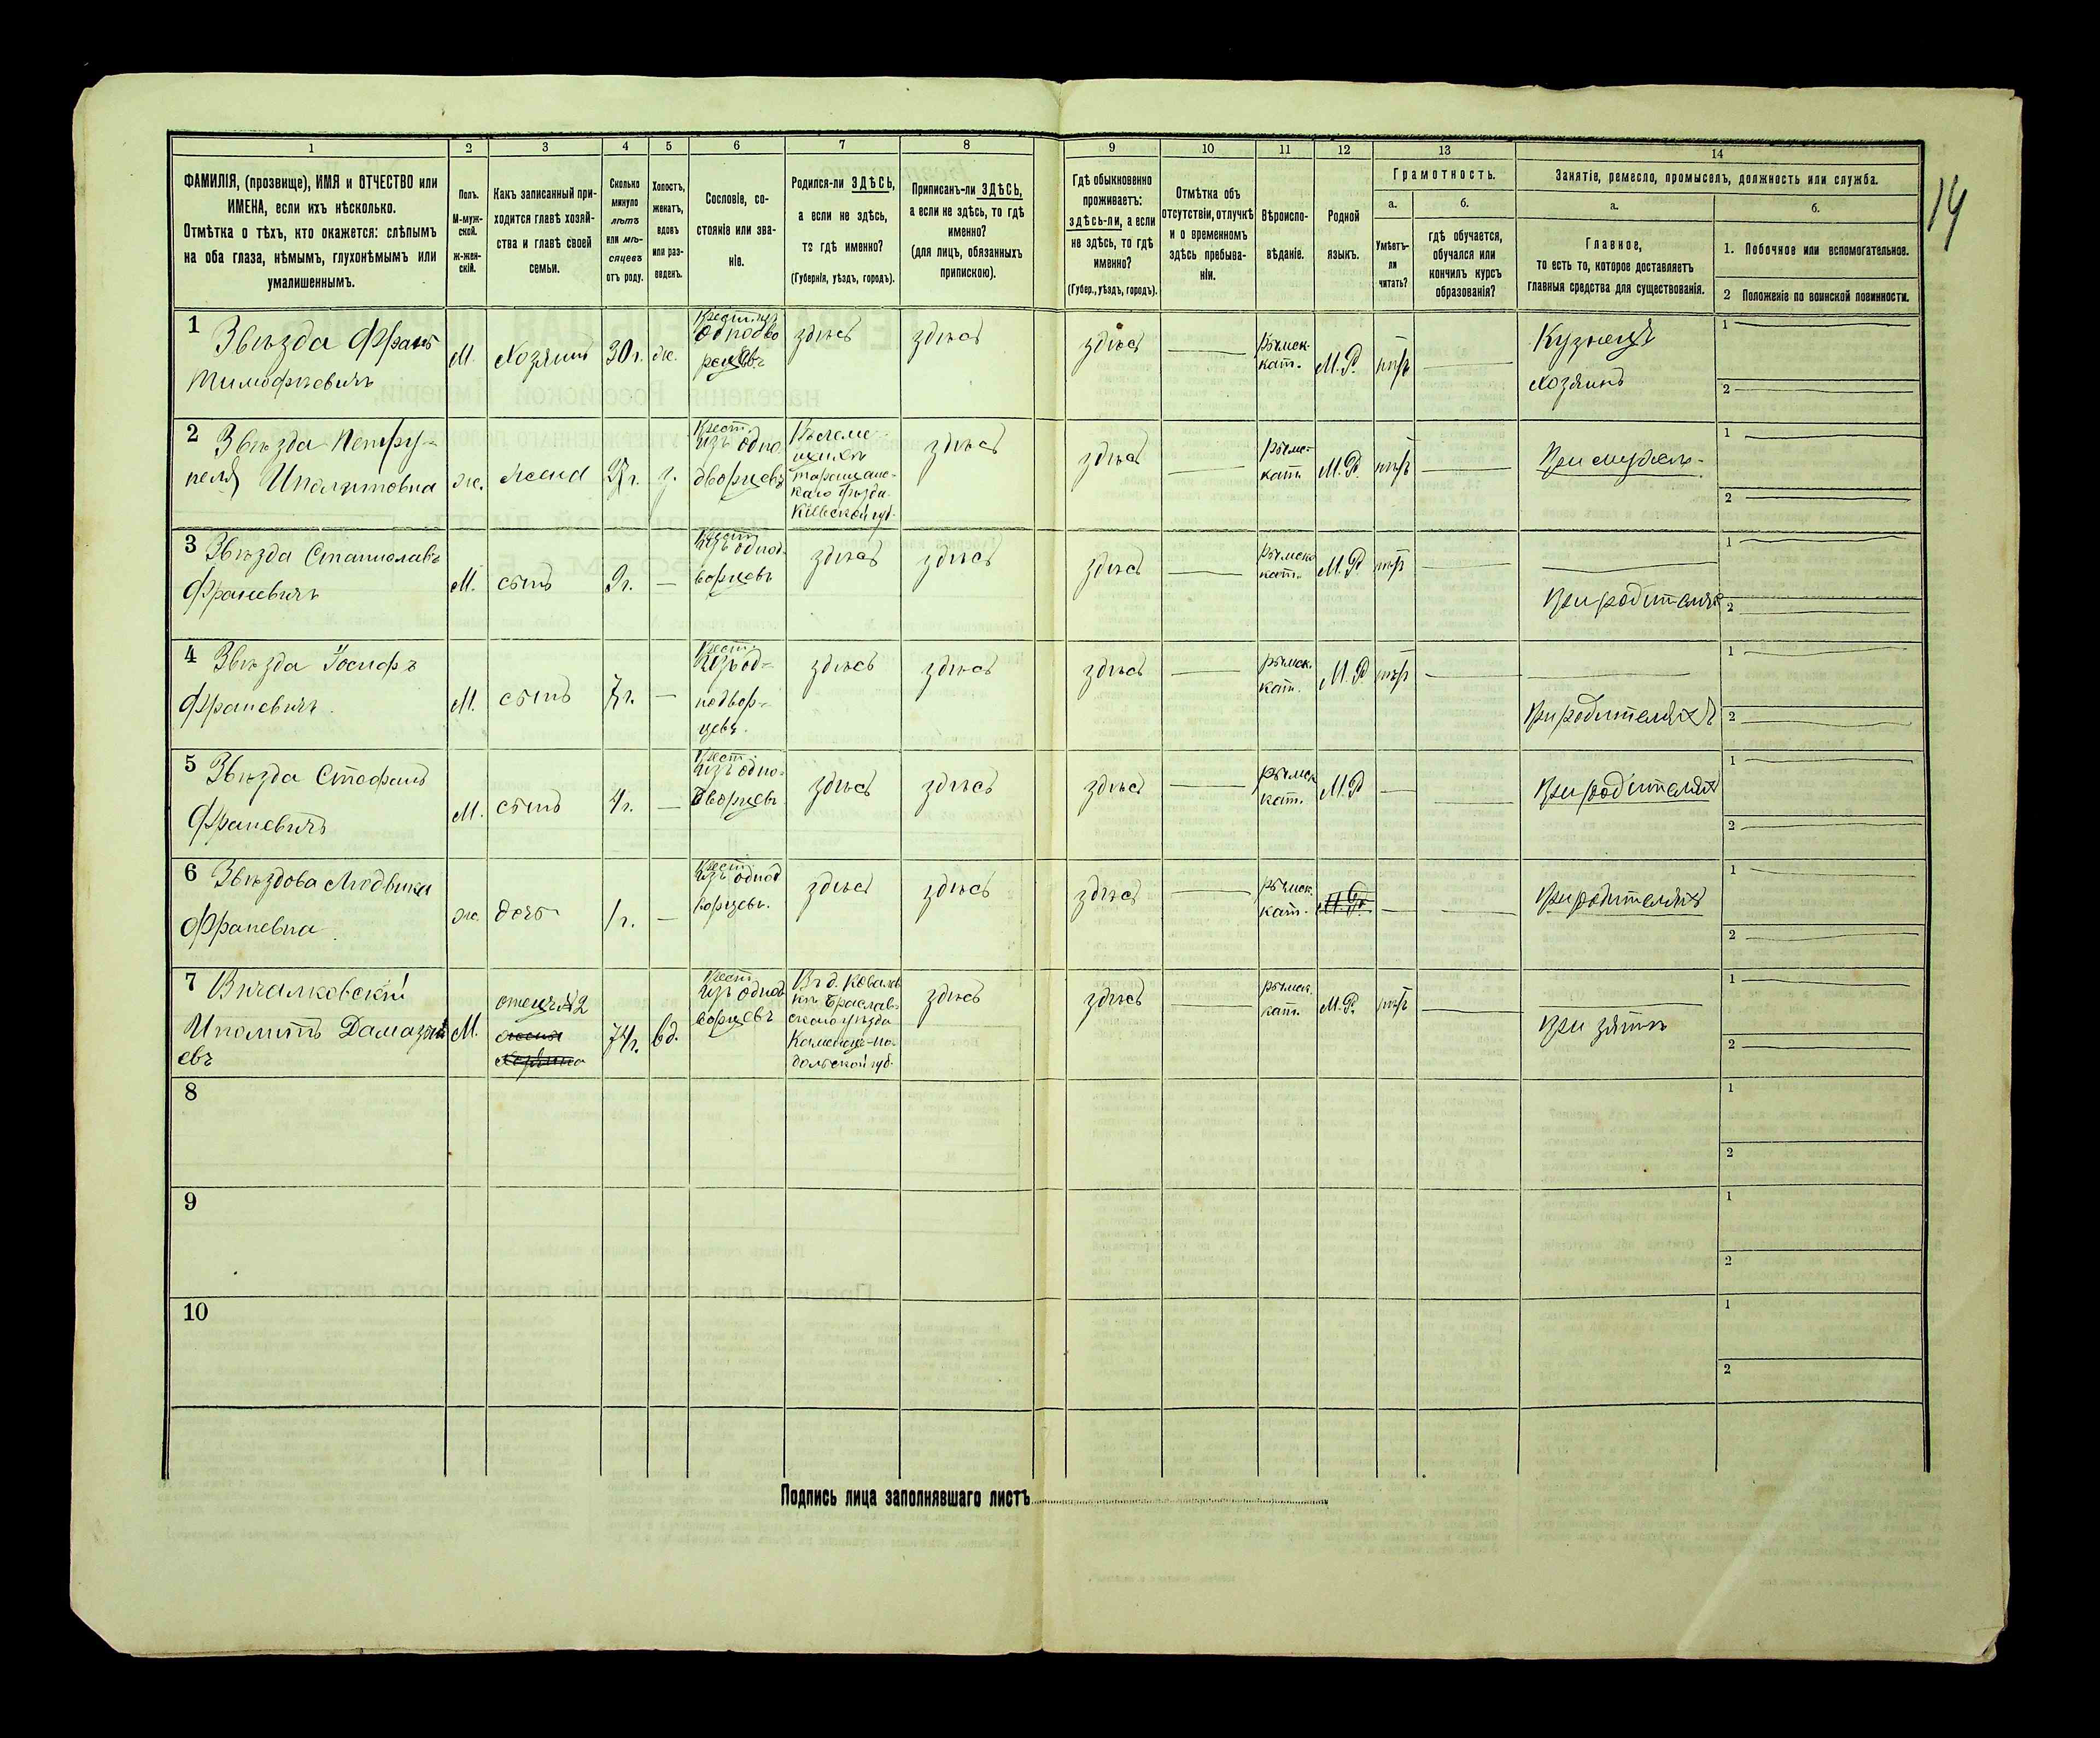 14
1 2 3 4 5 6 7 8 9 10 11 12 13 14
ФАМИЛІЯ, (прозвище), ИМЯ и ОТЧЕСТВО или
ИМЕНА, если ихъ нѣсколько.
Отмѣтка о тѣхъ, кто окажется: слѣпымъ
на оба глаза, нѣмымъ, глухонѣмымъ или
умалишеннымъ.
Полъ.
М-муж-
ской.
ж-жен-
скій.
Какъ записанный при-
ходится главѣ хозяй-
ства и главѣ своей
семьи.
Сколько
минуло
лѣтъ
или мѣ-
сяцевъ
отъ роду.
Холостъ,
женатъ,
вдовъ
или раз-
веденъ.
Сословіе, со-
стояніе или зва-
ніе.
Родился-ли ЗДѢСЬ,
а если не здѣсь,
то гдѣ именно?
(Губернія, уѣздъ, городъ).
Приписанъ-ли ЗДѢСЬ,
а если не здѣсь, то гдѣ
именно?
(для лицъ, обязанныхъ
припискою).
Гдѣ обыкновенно
проживаетъ:
здѣсь-ли, а если
не здѣсь, то гдѣ
именно?
(Губер., уѣздъ, городъ).
Отмѣтка объ
отсутствіи, отлучкѣ
и о временномъ
здѣсь пребыва-
ніи.
Вѣроиспо-
вѣданіе.
Родной
языкъ.
Грамотность.
а.
Умѣетъ-
ли
читать?
б.
гдѣ обучается,
обучался или
кончилъ курсъ
образованія?
Занятіе, ремесло, промыселъ, должность или служба.
а.
Главное,
то есть то, которое доставляетъ
главныя средства для существованія.
б.
1. Побочное или вспомогательное.
2 Положеніе по воинской повинности.
1 Звѣзда Франъ
Тимофѣевичъ
М. Хозяинъ 30 г. же.
однодво
рцевъ
здѣсь здѣсь здѣсь
римск.
кат. М. Р.
Кузнецъ
хозяинъ
1
2
2 Звѣзда Петру-
неля Иполитовна
же. жена
Крест.
изъ одно
дворцевъ
таращанс-
каго уѣзда
Кіевской губ.
здѣсь здѣсь
кат. М. Р.
При мужѣ
1
2
3 Звѣзда Станиславъ
Франевичъ
М. сынъ 9 г. —
Крест.
изъ однод
ворцевъ
здѣсь здѣсь здѣсь
римск.
кат. М. Р.
При родителяхъ
1
2
4 Звѣзда Іосифъ
Франевичъ
М. сынъ 7 г. —
Крест.
изъ од-
нодвор-
цевъ.
здѣсь здѣсь здѣсь
римск.
кат. М. Р.
При родителяхъ
1
2
5 Звѣзда Стефанъ
Франевичъ
М. сынъ 4 г. —
Крест.
изъ одно-
дворцевъ
здѣсь здѣсь здѣсь
римск
кат. М. Р. —
При родителяхъ
1
2
6 Звѣздова Людвика
Франевна
же. дочь 1 г. —
Крест.
изъ однод
ворцевъ.
здѣсь здѣсь здѣсь
римск.
кат. М. Р. —
При родителяхъ
1
2
7
Иполитъ
евъ
М. отецъ №2
жены
74 г. вд.
Крест.
изъ однод
ворцевъ
Въ д. Ковалев
кѣ Брацлав-
скаго уѣзда
Каменецъ-По-
дольской губ.
здѣсь здѣсь
римск.
кат. М. Р.
При зятѣ
1
2
8
1
2
9
1
2
10
1
2
Подпись лица заполнявшаго листъ